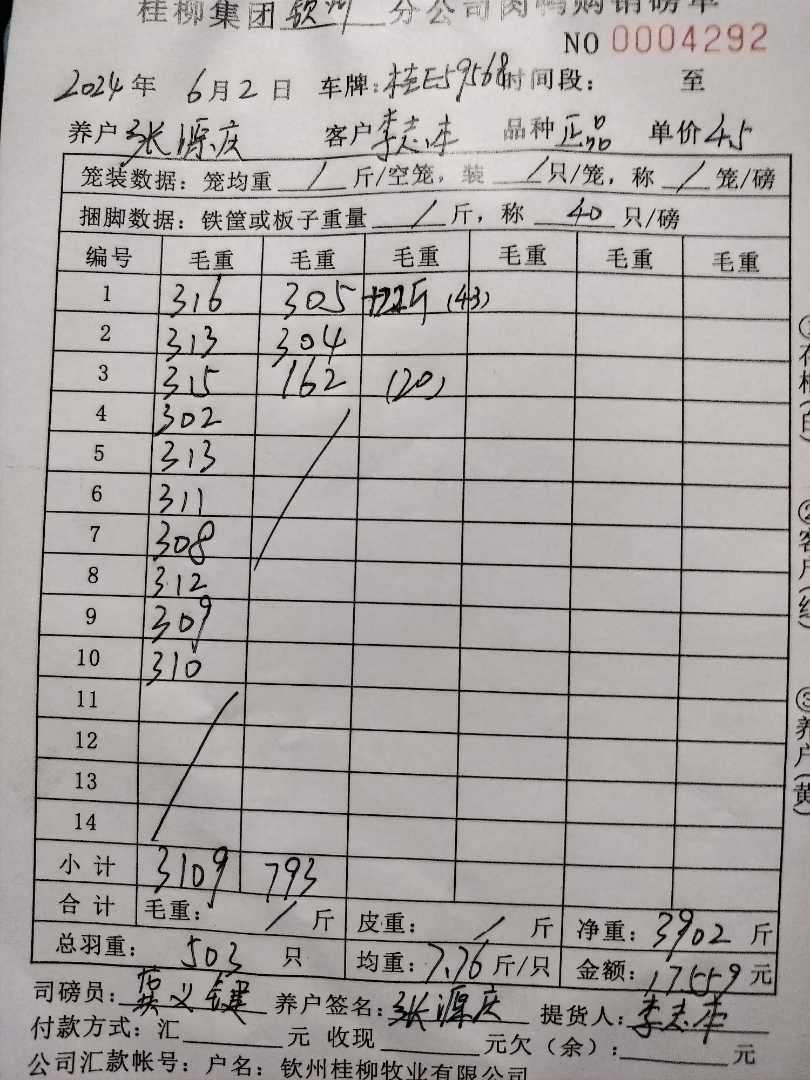 桂柳集团钦州分公司肉鸭购销磅单
NO 0004292
2024年 6月2日 车牌:桂E59568 时间段: 至
养户 张源庆 客户 李志本 品种 正品 单价 4.5
笼装数据:笼均重 / 斤/空笼,装 / 只/笼,称 / 笼/磅
捆脚数据:铁筐或板子重量 / 斤,称 40 只/磅
编号 毛重 毛重 毛重 毛重 毛重 毛重
1 316 305 (43)
2 313 304
3 315 162 (20)
4 302
5 313
6 311
7 308
8 312
9 309
10 310
11
12
13
14
小计 3109 793
合计 毛重: / 斤 皮重: / 斤 净重:3902 斤
总羽重: 503 只 均重:7.76 斤/只 金额:17559 元
司磅员: 养户签名:张源庆 提货人:李志本
付款方式:汇 元 收现 元欠(余): 元
公司汇款帐号:户名:钦州桂柳牧业有限公司
②客户(红)
③养户(黄)